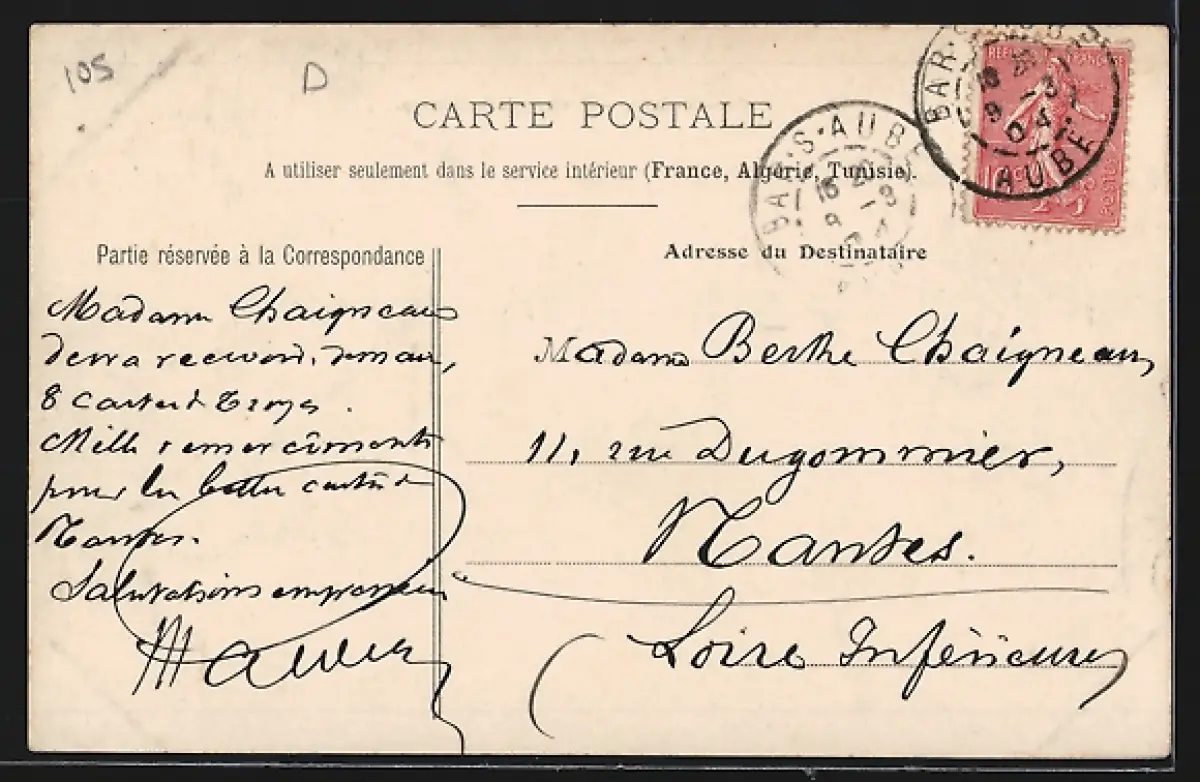 105
D
CARTE POSTALE
A utiliser seulement dans le service intérieur (France, Algérie, Tunisie).
BAR-S-AUBE
AUBE
BAR-S-AUBE
Partie réservée à la Correspondance
Madame Chaigneau
devra recevoir, demain,
8 cartes de Troyes.
Mille remerciments
pour les belles cartes de
Nantes.
Salutations empressées
Adresse du Destinataire
Madame Berthe Chaigneau,
11, rue Dugommier,
Nantes.
(Loire Inférieure)